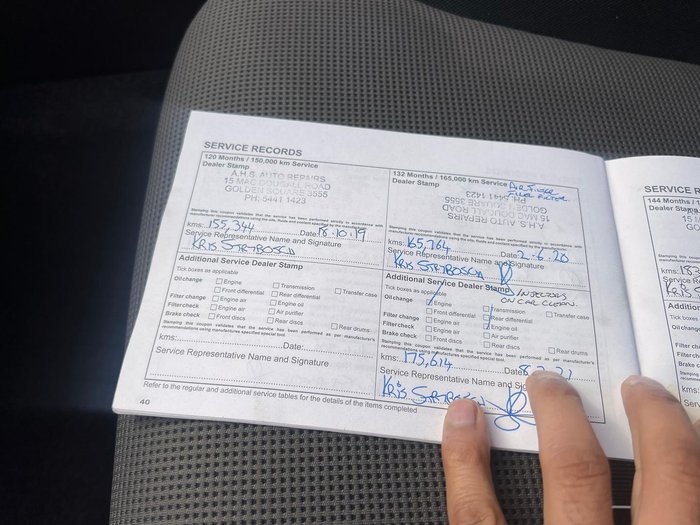 SERVICE RECORDS
120 Months / 150,000 km Service
Dealer Stamp
A.H.S. AUTO REPAIRS
15 MAC DOUGALL ROAD
GOLDEN SQUARE 3555
PH: 5441 1423
Stamping this coupon validates that the service has been performed strictly in accordance with
kms: 155,344 Date: 15.10.19
Service Representative Name and Signature
KRIS STRYBOSCH
Additional Service Dealer Stamp
Tick boxes as applicable
Oil change Engine Transmission Transfer case
Front differential Rear differential
Filter change Engine air Engine oil
Filter check Engine air Air purifier
Brake check Front discs Rear discs Rear drums
Stamping this coupon validates that the service has been performed as per manufacturer's
recommendations using manufactures specified special tool.
kms: Date:
Service Representative Name and Signature
Refer to the regular and additional service tables for the details of the items completed
40
132 Months / 165,000 km Service AIR FILTER
Dealer Stamp FUEL FILTER
A.H.S. AUTO REPAIRS
15 MAC DOUGALL ROAD
GOLDEN SQUARE 3555
PH: 5441 1423
Stamping this coupon validates that the service has been performed strictly in accordance with
kms: 165,764 Date: 2-6-20
Service Representative Name and Signature
KRIS STRYBOSCH
Additional Service Dealer Stamp
INJECTORS
ON CAR CLEAN.
Tick boxes as applicable
Oil change Engine Transmission Transfer case
Front differential Rear differential
Filter change Engine air Engine oil
Filter check Engine air Air purifier
Brake check Front discs Rear discs Rear drums
Stamping this coupon validates that the service has been performed as per manufacturer's
recommendations using manufactures specified special tool.
kms: 175,614 Date
Service Representative Name and
KRIS STRYBOSCH
SERVICE R
144 Months /
Dealer Stamp
15 M
GO
kms:
Service Re
Additional
Tick boxes
Oil change
Filter ch
Filter che
Brake c
kms:
Serv